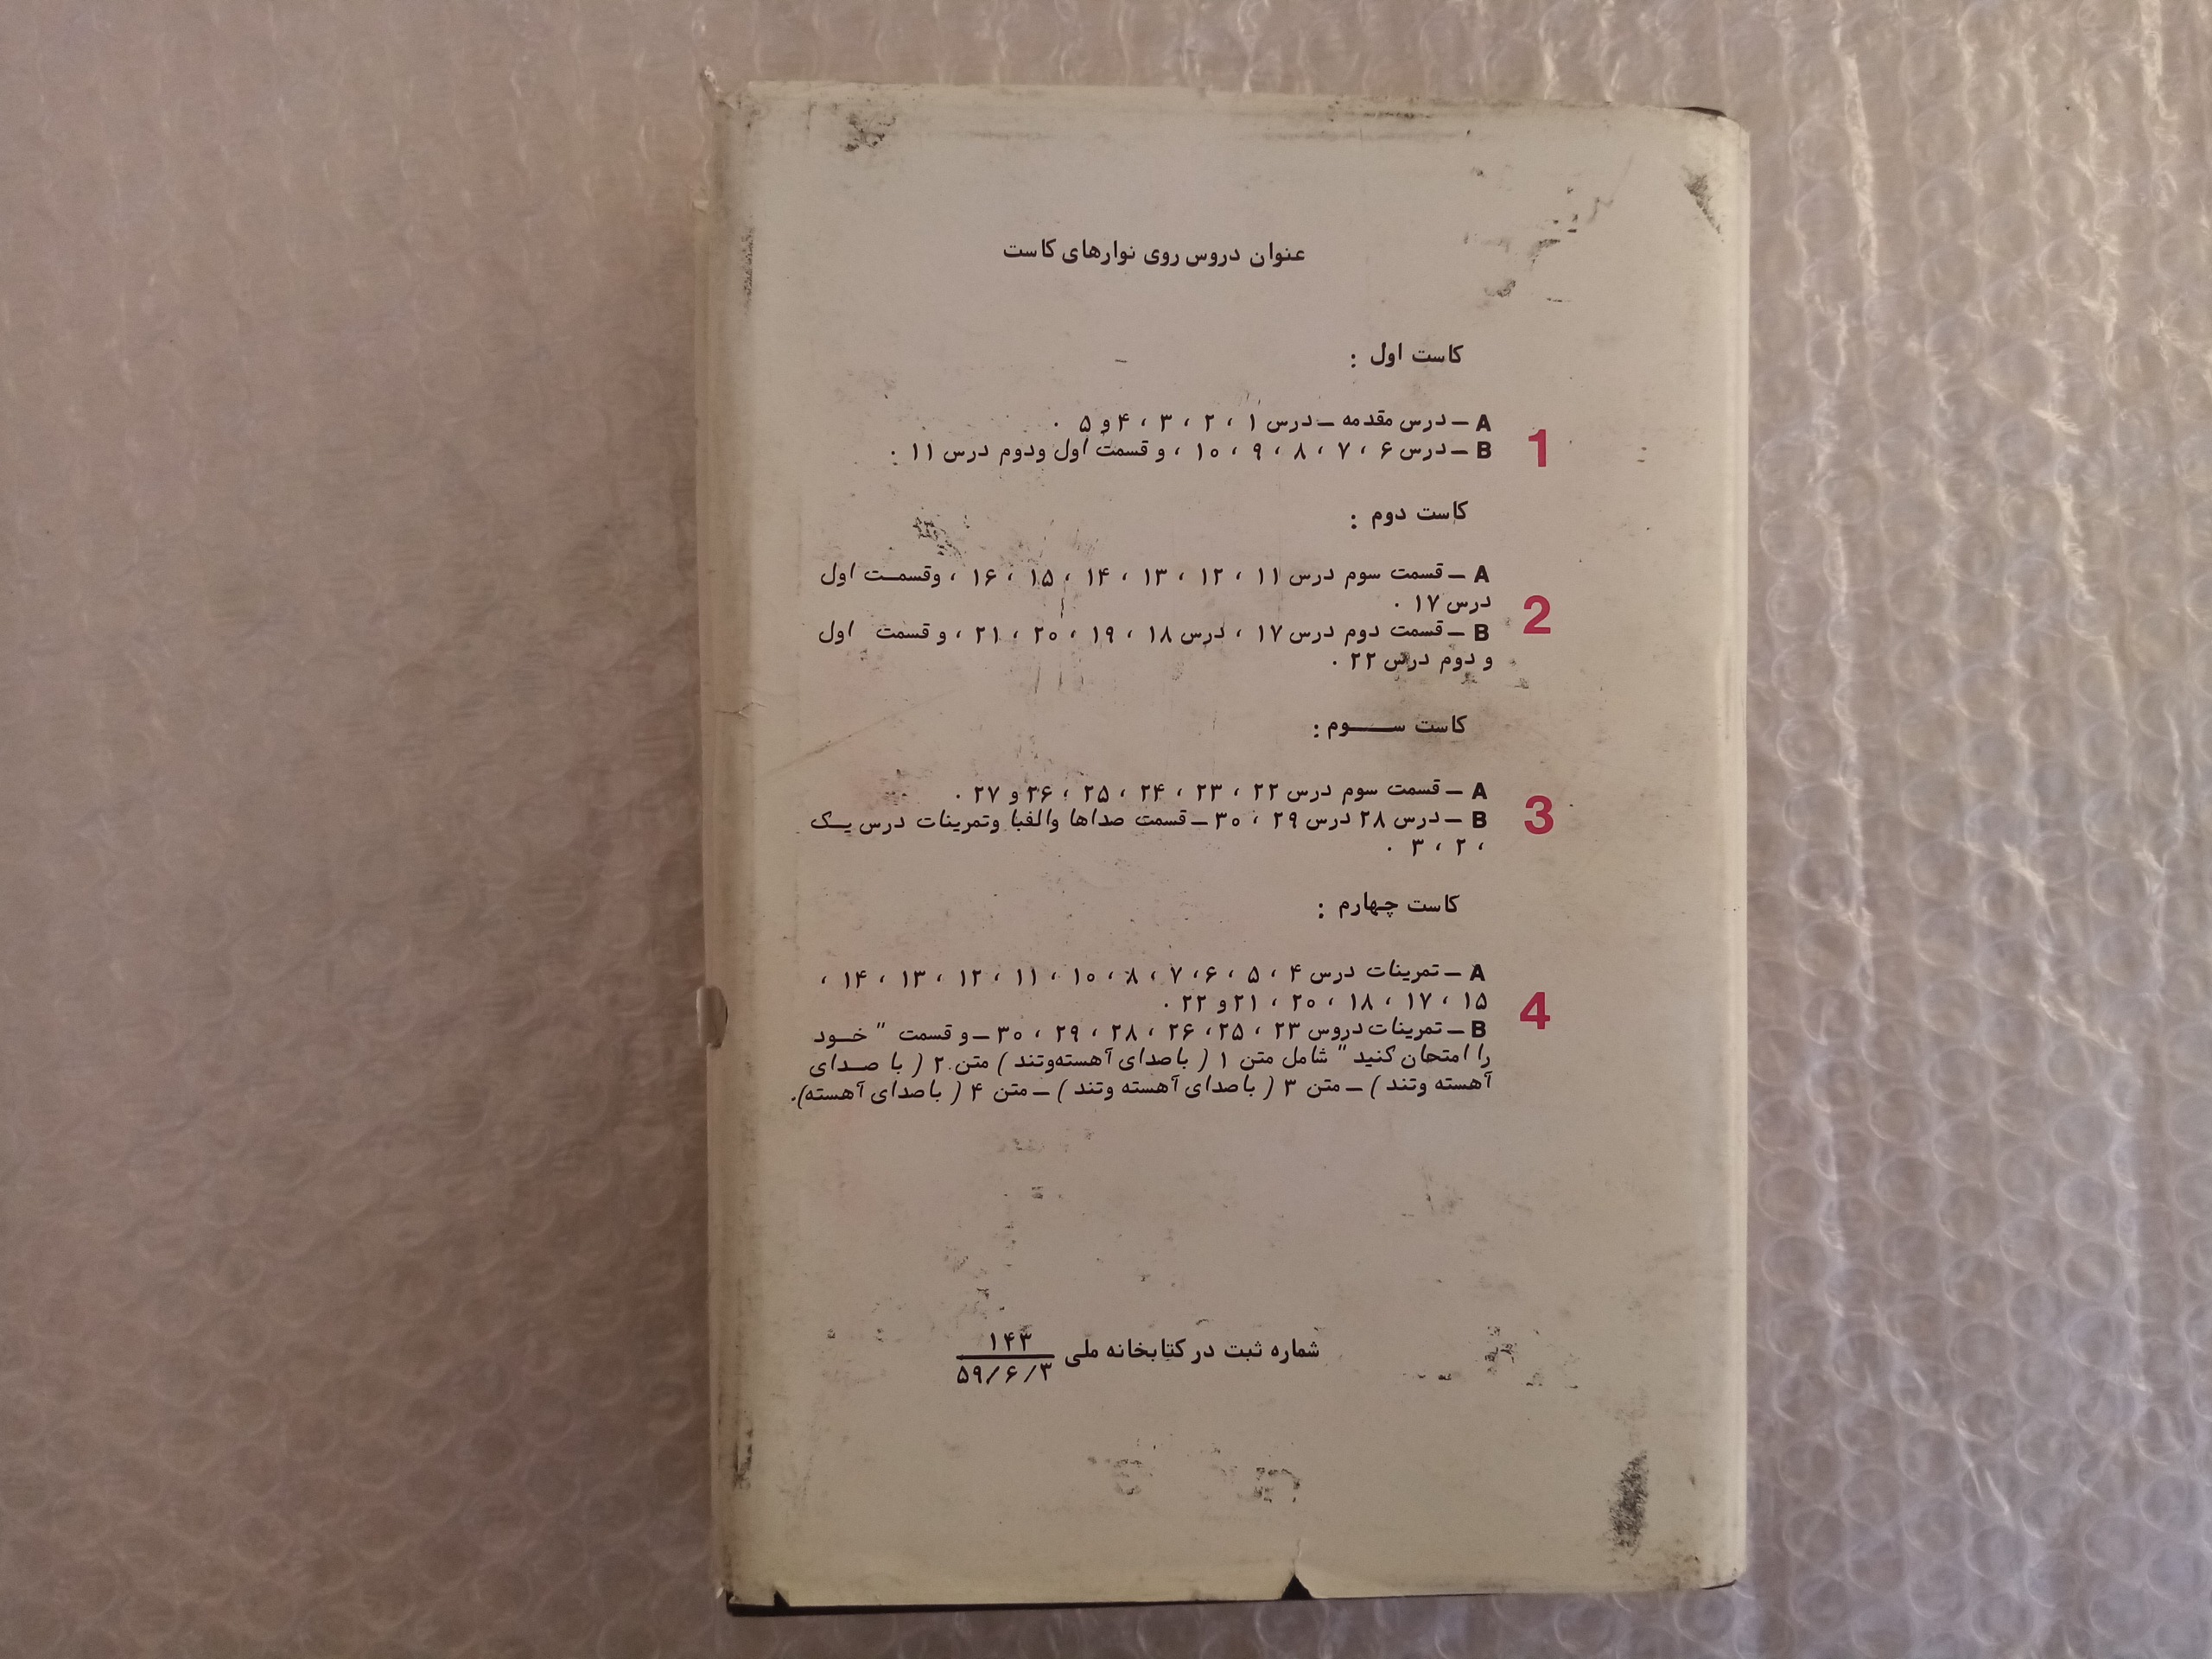 عنوان دروس روی نوارهای کاست
کاست اول :
A – درس مقدمه – درس ۱ ، ۲ ، ۳ ، ۴ و ۵ .
1
B – درس ۶ ، ۷ ، ۸ ، ۹ ، ۱۰ ، و قسمت اول ودوم درس ۱۱ .
کاست دوم :
A – قسمت سوم درس ۱۱ ، ۱۲ ، ۱۳ ، ۱۴ ، ۱۵ ، ۱۶ ، وقسمــت اول
درس ۱۷ .
2
B – قسمت دوم درس ۱۷ ، درس ۱۸ ، ۱۹ ، ۲۰ ، ۲۱ ، و قسمت اول
و دوم درس ۲۲ .
کاست ســــوم :
A – قسمت سوم درس ۲۲ ، ۲۳ ، ۲۴ ، ۲۵ ، ۲۶ و ۲۷ .
3
B – درس ۲۸ درس ۲۹ ، ۳۰ – قسمت صداها والفبا وتمرینات درس یــک
، ۲ ، ۳ .
کاست چهارم :
A – تمرینات درس ۴ ، ۵ ، ۶ ، ۷ ، ۸ ، ۱۰ ، ۱۱ ، ۱۲ ، ۱۳ ، ۱۴ ،
۱۵ ، ۱۷ ، ۱۸ ، ۲۰ ، ۲۱ و ۲۲ .
4
B – تمرینات دروس ۲۳ ، ۲۵ ، ۲۶ ، ۲۸ ، ۲۹ ، ۳۰ – و قسمت " خــود
را امتحان کنید " شامل متن ۱ ( باصدای آهسته‌وتند ) متن ۲ ( با صـدای
آهسته وتند ) – متن ۳ ( باصدای آهسته وتند ) – متن ۴ ( باصدای آهسته).
شماره ثبت در کتابخانه ملی ۱۴۳
۵۹/۶/۳